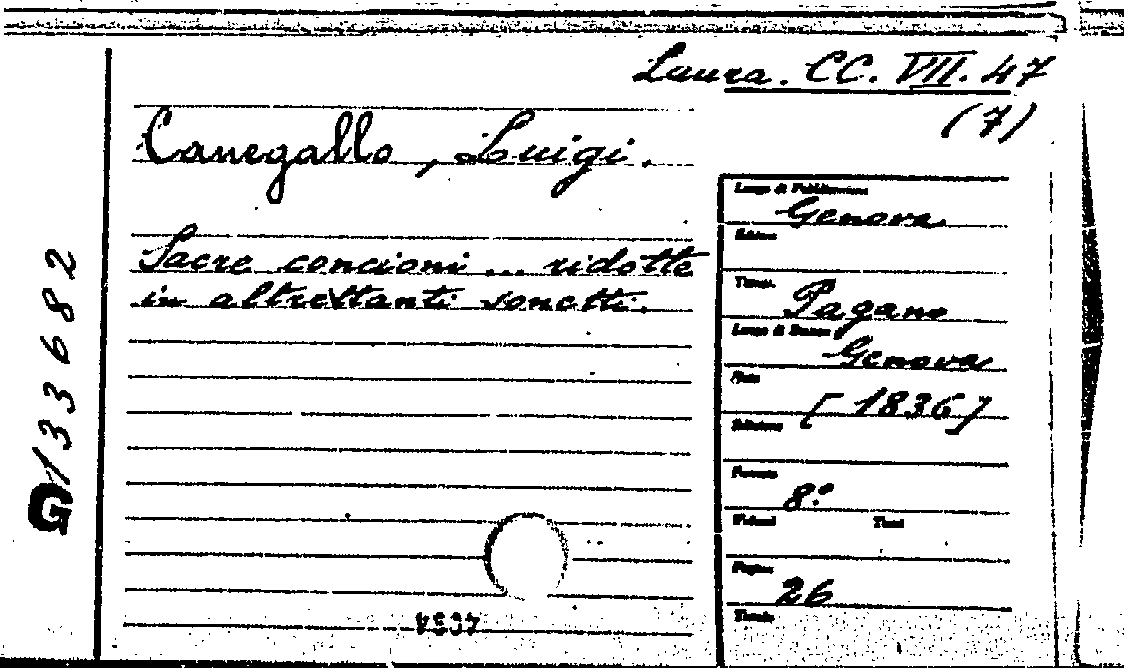 Laura. CC. VII. 47
(7)
Canegallo, Luigi.
Sacre concioni ... ridotte
in altrettanti sonetti.
G133682
Luogo di Pubblicazione
Genova
Editore
Pagano
Luogo di Stampa
Genova
Data
[1836]
Edizione
Formato
8°
Volumi Tomi
Pagine
26